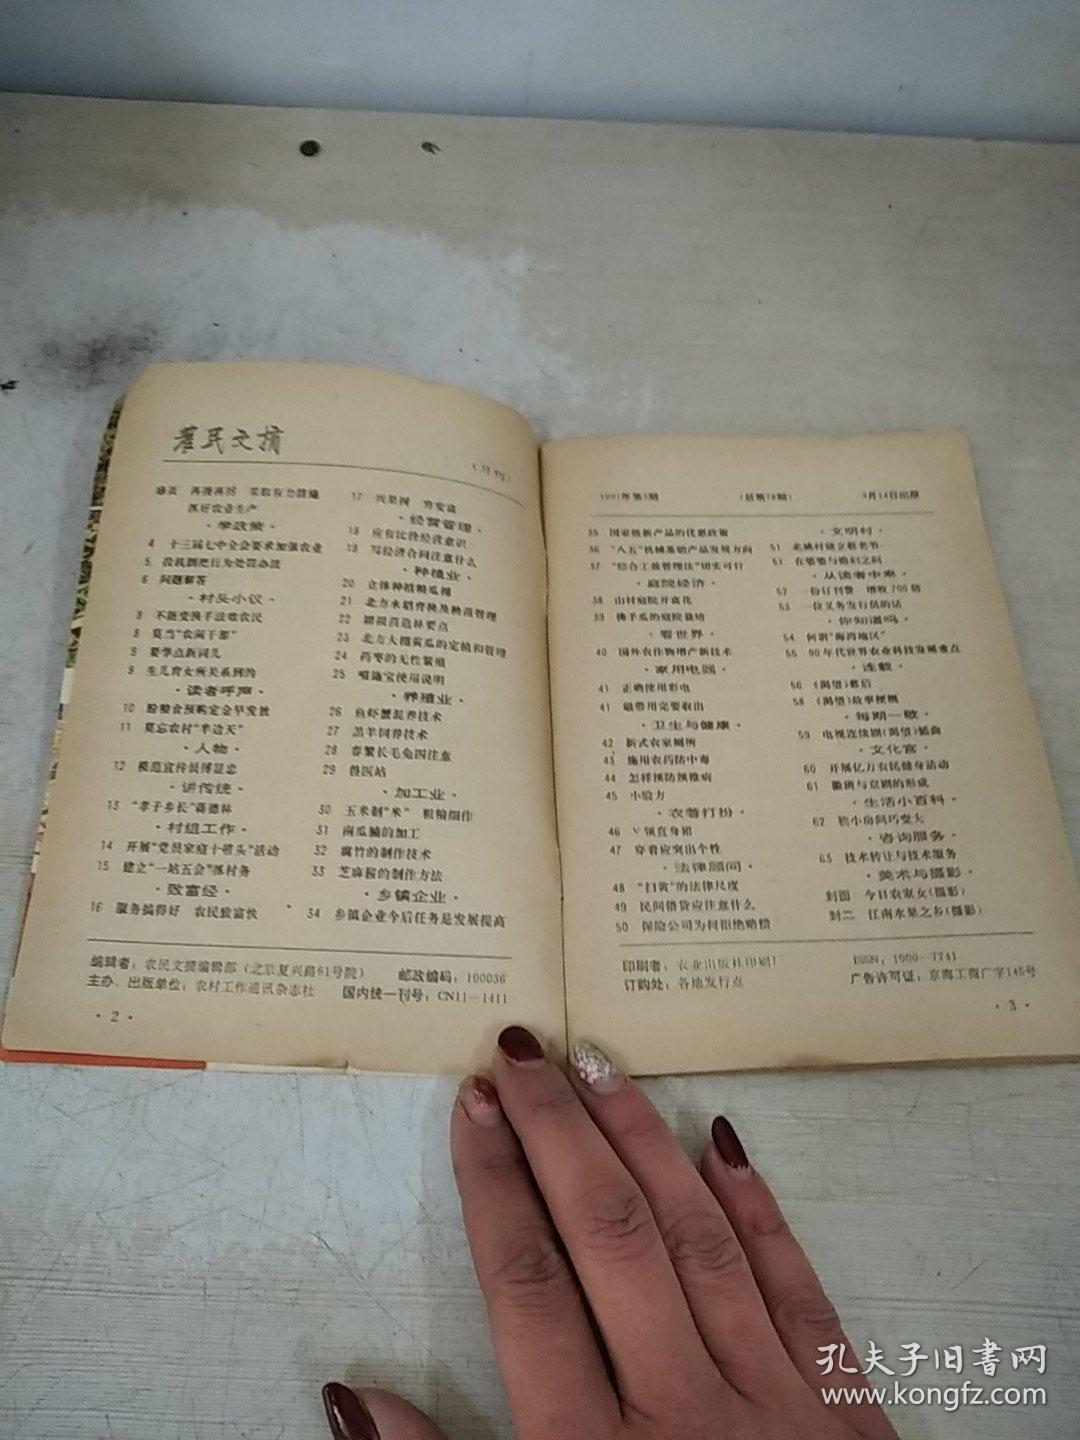 农民文摘
（月刊）
扉页 再接再厉 采取有力措施
抓好农业生产
·学政策·
4 十三届七中全会要求加强农业
5 投机倒把行为处罚办法
6 问题解答
·村头小议·
8 不能变换手法难农民
8 莫当“农闹干部”
8 要学点新词儿
9 生儿育女所关系到的
·读者呼声·
10 盼粮食预购定金早发放
11 莫忘农村“半边天”
·人物·
12 模范宣传员傅显忠
·讲传统·
13 “孝子乡长”蒋德林
·村组工作·
14 开展“党员家庭十带头”活动
15 建立“一站五会”抓村务
·致富经·
16 服务搞得好 农民致富快
17 兴果树 穷变富
·经营管理·
18 应有比价经济意识
19 写经济合同注意什么
·种植业·
20 立体种植粮瓜间
21 北方水稻育秧及秧苗管理
22 裸根苗造林要点
23 北方大棚黄瓜的定植和管理
24 药枣的无性繁殖
25 喷施宝使用说明
·养殖业·
26 鱼虾蟹混养技术
27 羔羊饲养技术
28 春繁长毛兔四注意
29 兽医站
·加工业·
30 玉米制“米” 粗粮细作
31 南瓜脯的加工
32 腐竹的制作技术
33 芝麻酱的制作方法
·乡镇企业·
34 乡镇企业今后任务是发展提高
编辑者：农民文摘编辑部（北京复兴路61号院） 邮政编码：100036
主办、出版单位：农村工作通讯杂志社 国内统一刊号：CN11—1411
·2·
1991年第3期 （总第78期） 3月14日出版
35 国家级新产品的优惠政策
36 “八五”机械基础产品发展方向
37 “综合工效管理法”切实可行
·庭院经济·
38 山村庭院开富花
39 佛手瓜的庭院栽培
·看世界·
40 国外农作物增产新技术
·家用电器·
41 正确使用彩电
41 磁带用完要取出
·卫生与健康·
42 新式农家厕所
43 施用农药防中毒
44 怎样预防颈椎病
45 小验方
·衣着打扮·
46 V领直身裙
47 穿着应突出个性
·法律顾问·
48 “扫黄”的法律尺度
49 民间借贷应注意什么
50 保险公司为何拒绝赔偿
·文明村·
51 北姚村建立敬老节
51 在婆婆与媳妇之间
·从读者中来·
52 一份订刊费 增收700倍
53 一位义务发行员的话
·你知道吗·
54 何谓“海湾地区”
55 90年代世界农业科技发展重点
·连载·
56 《渴望》幕后
58 《渴望》故事梗概
·每期一歌·
59 电视连续剧《渴望》插曲
·文化宫·
60 开展亿万农民健身活动
61 徽班与京剧的形成
·生活小百科·
62 农小房间巧变大
·咨询服务·
63 技术转让与技术服务
·美术与摄影·
封面 今日农家女（摄影）
封二 江南水果之乡（摄影）
印刷者：农业出版社印刷厂 ISSN：1000—7741
订购处：各地发行点 广告许可证：京海工商广字145号
·3·
孔夫子旧书网
www.kongfz.com